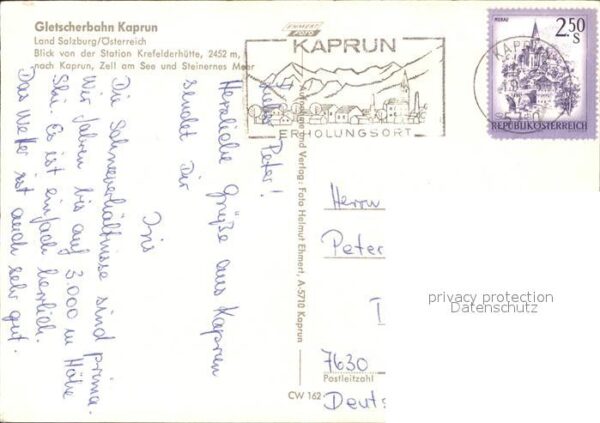 Gletscherbahn Kaprun
Land Salzburg/Österreich
Blick von der Station Krefelderhütte, 2452 m,
nach Kaprun, Zell am See und Steinernes Meer
EHMERT
FOTO
KAPRUN
ERHOLUNGSORT
MURAU
2.50
S
REPUBLIK ÖSTERREICH
KAPRUN
Lieber Peter!
Herzliche Grüße aus Kaprun
sendet Dir
Iris
Die Schneeverhältnisse sind prima.
Wir fahren bis auf 3.000 m Höhe
Ski. Es ist einfach herrlich.
Das Wetter ist auch sehr gut.
Aufnahme und Verlag: Foto Helmut Ehmert, A-5710 Kaprun
Herrn
Peter
7630
Postleitzahl
CW 162
Deuts
privacy protection
Datenschutz